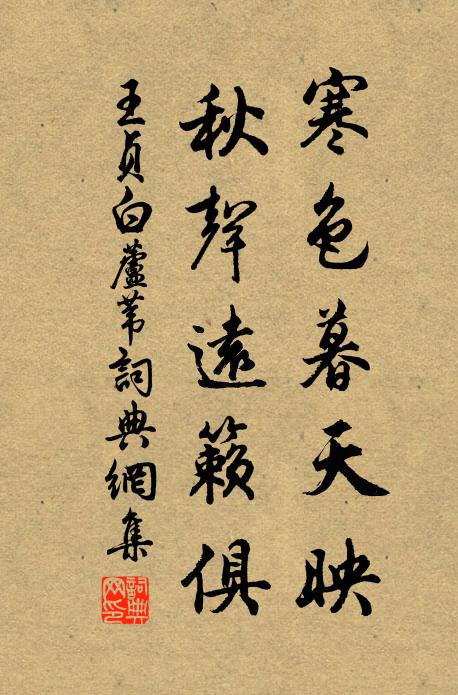 寒色暮天映
秋聲遠籟俱
王貞白蘆葦詞典網集
詞典
网印